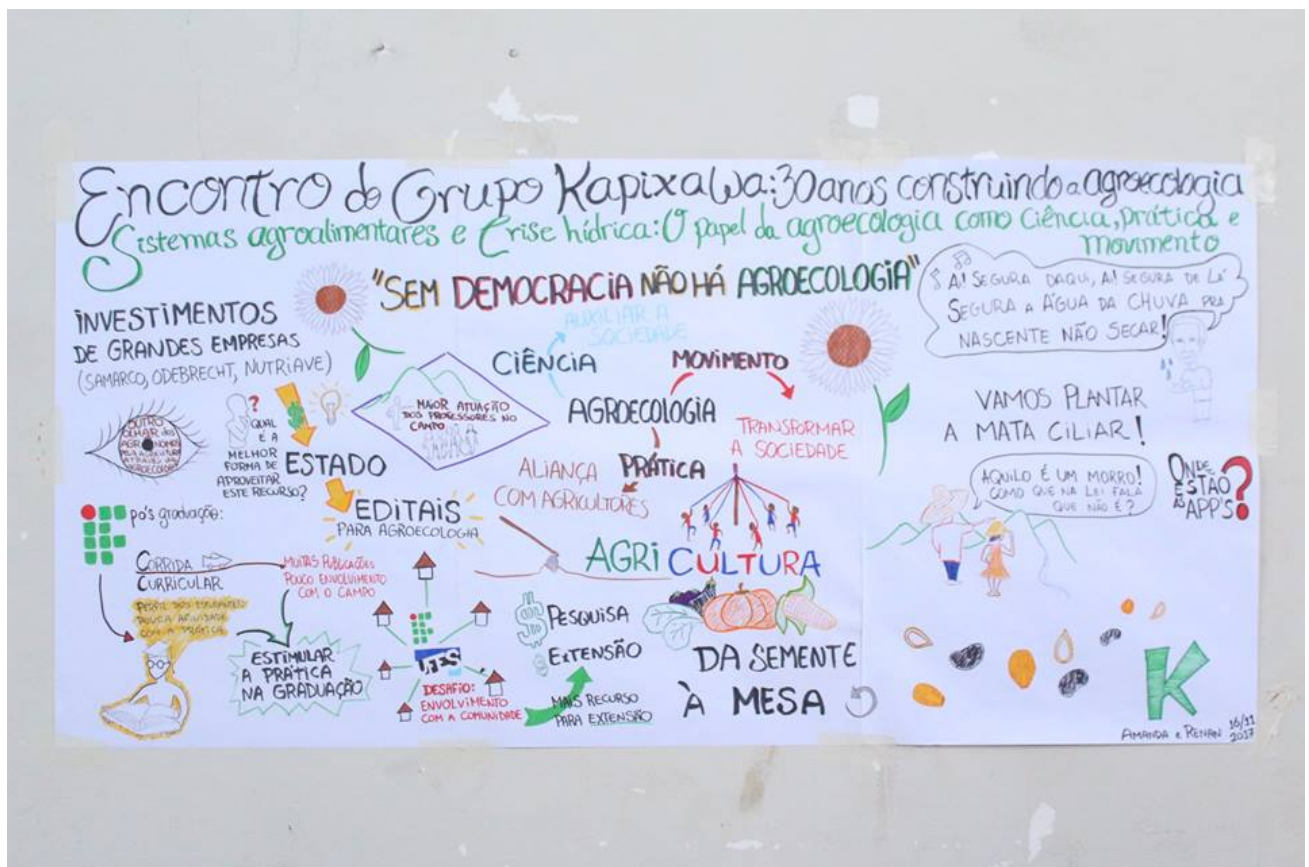 Encontro do Grupo Kapixawa: 30 anos construindo a agroecologia
Sistemas agroalimentares e Crise hídrica: O papel da agroecologia como Ciência, prática e
movimento
"SEM DEMOCRACIA NÃO HÁ AGROECOLOGIA"
INVESTIMENTOS
DE GRANDES EMPRESAS
(SAMARCO, ODEBRECHT, NUTRIAVE)
OUTRO
OLHAR dos
AGRÔNOMOS
?
QUAL
É A
MELHOR
FORMA DE
APROVEITAR
ESTE RECURSO?
$
ESTADO
EDITAIS
PARA AGROECOLOGIA
MAIOR ATUAÇÃO
DOS PROFESSORES NO
CAMPO
CIÊNCIA
AUXILIAR A
SOCIEDADE
MOVIMENTO
AGROECOLOGIA
TRANSFORMAR
A SOCIEDADE
PRÁTICA
ALIANÇA
COM AGRICULTORES
AGRICULTURA
pós graduação:
CORRIDA
CURRICULAR
MUITAS PUBLICAÇÕES
POUCO ENVOLVIMENTO
COM O CAMPO
PERFIL DOS ESTUDANTES:
POUCA AFINIDADE
COM A PRÁTICA
ESTIMULAR
A PRÁTICA
NA GRADUAÇÃO
UFES
DESAFIO:
ENVOLVIMENTO
COM A COMUNIDADE
$ PESQUISA
$ EXTENSÃO
MAIS RECURSO
PARA EXTENSÃO
DA SEMENTE
À MESA
AI! SEGURA DAQUI, AI! SEGURA DE LÁ
SEGURA A ÁGUA DA CHUVA PRA
NASCENTE NÃO SECAR!
VAMOS PLANTAR
A MATA CILIAR!
AQUILO É UM MORRO!
COMO QUE NA LEI FALA
QUE NÃO É?
ONDE
ESTÃO
AS
APP'S?
K
AMANDA e RENAN 16/11
2017